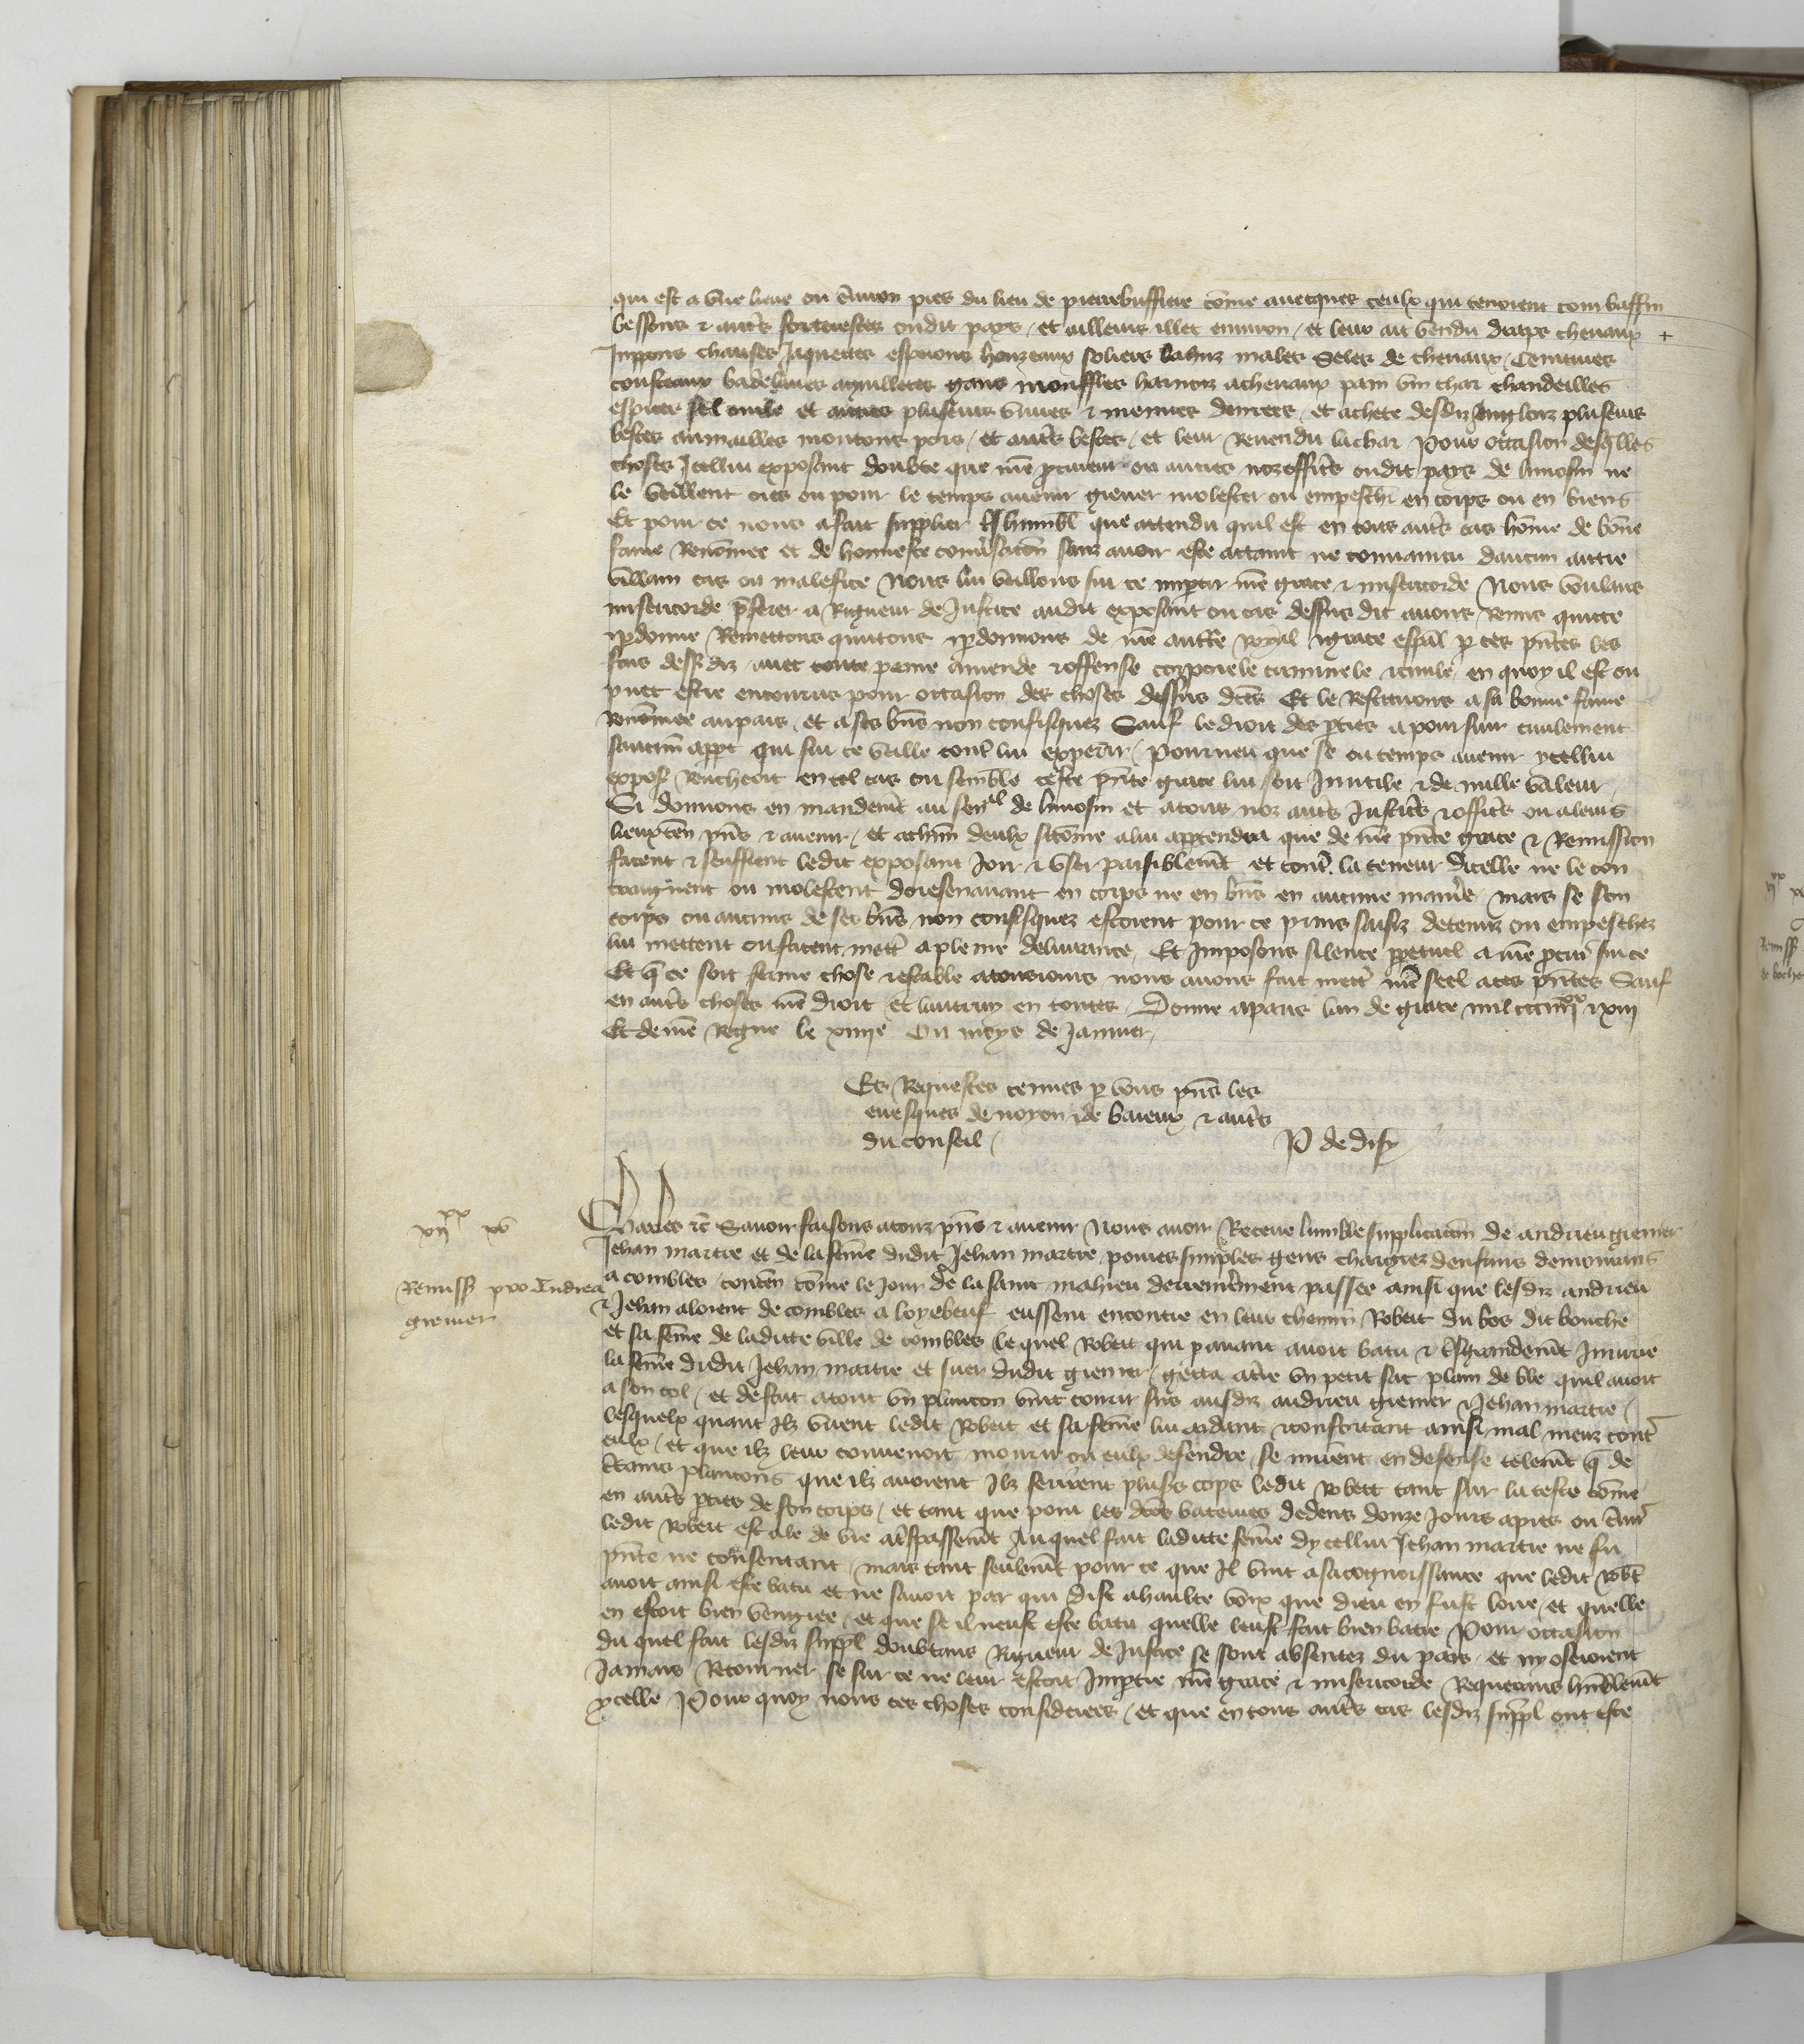 qui est a une lieue ou env̄iron pres du lieu de pierrebuffiere cōme avecques ceulx qui tenoient com baffin
bessons & aut̄s forteresces oudit pays / et ailleurs illec environ / et leur ait vendu draps chevaux +
Juppons chauses Jaquettes esperons houzeaux soliers males Seles de chevaux / Ceintures
cousteaux badelaires aguilletes gans mouffles harnois a chevaux pain vin char chandeilles
espices sel uile et autres plusieurs vivres & menues denrees / et achete desdiz Anglois plusieurs
bestes aumailles moutons pors / et aut̄s bestes / et leur Revendu la char Pour occasion desq̄lles
choses Icellui exposant doubte que nr̄e p̄cureur ou autres noz offic̄s oudit pays de limosin ne
le vueillent ores ou pour le temps avenir grever molester ou empesch̄ en corps ou en biens
Et pour ce nous a fait supplier t̄shumbl̄ que attendu quil est en tous aut̄s cas hōme de bōne
fame Renōmee et de honneste conv̄sacōn sanz avoir este attaint ne convaincu daucun autre
villain cas ou malefice Nous lui vueillons sur ce imp̄tir nr̄e grace & misericorde Nous voulans
misericorde p̄ferer a Rigueur de Justice audit exposant ou cas dessus dit avons Remis quicte
& p̄donne Remettons quittons & p̄donnons de nr̄e auctte Royal & grace esp̄al p̄ ces p̄ntes les
fais dessusdiz / avec toute peine amende & offense corporele criminele & civile en quoy il est ou
puet estre encourus pour occasion des choses dessus dc̄es Et le Restituons a sa bonne fame
Renōmee au pais / et a ses bn̄s non confisquez Sauf le droit des p̄ties a poursuir civilement
saucun̄ app̄t qui sur ce vueille cont̄ lui exp̄erir / Pourveu que se ou temps avenir ycellui
expos̄ Rencheoit en tel cas ou semblē ceste p̄nte grace lui soit Inutile & de nulle valeur
Si donnons en mandem̄t au sen̄al de limosin et a tous noz aut̄s Justic̄s & offic̄s ou a leurs
lieuxten̄ p̄ns & avenir / et a chūn deulx si cōme a lui app̄tendra que de nr̄e p̄nte grace & Remission
facent & seuffrent ledit exposant Joir & user paisiblem̄t et cont̄ la teneur dicelle ne le con
traignent ou molestent doresenavant en corps ne en bn̄s en aucune manīe / mais se son
corps ou aucuns de ses bn̄s non confisquez estoient pour ce prins saisiz detenuz ou empeschez
lui mettent ou facent mett̄ a pleine delivrance / Et Imposons silence p̄petuel a nr̄e p̄cur̄ sur ce
Et q̄ ce soit ferme chose & estable a tousiours nous avons fait mett̄ nr̄e seel a ces p̄ntes Sauf
en aut̄s choses nr̄e droit et lautruy en toutes / Donne a paris lan de grace mil ccc iiij^xx & xiij
Et de nr̄e Regne le xiiije Ou moys de Janvier /
Es Requestes tenues p̄ vous p̄ns les
evesques de noyon & de baieux & aut̄s
du conseil / P de disy
Charles &c̄ Savoir faisons a touz p̄ns & avenir Nous avoir Receue lumble supplicacōn de andrieu grenier
Jehan martre et de la fēme dudit Jehan martre povres simples gens chargiez denfans demourans
a combles / conten̄ cōme le Jour de la saint mahieu derrenīerement passee ainsi que lesdiz andrieu
& Jehan aloient de combles a loyebeuf eussent encontre en leur chemin Robert du bos dit bouche
et sa fēme de ladicte ville de combles le quel Robert qui p̄avant avoit batu & t̄sgrandem̄t Iniurie
la fēme dudit Jehan martre et suer dudit grenier / getta a t̄re un petit sac plain de ble quil avoit
a son col / et de fait a tout un plancon vint courir sus ausdiz andrieu grenier & Jehan martre /
lesquelx quant ilz virent ledit Robert et sa fēme lui aidant & confortant ainsi mal meuz cont̄
eulx / et que ilz leur convenoit mourir ou eulx defendre se mirent en defense telem̄t q̄ de
c̄tains plancons que ilz avoient Ilz ferirent plus̄s cops ledit Robert tant sur la teste cōme
en aut̄s p̄ties de son corps / et tant que pour les dc̄es bateures dedens douze Jours apres ou env̄
ledit Robert est ale de vie a t̄spassem̄t Auquel fait ladicte fēme dycellui Jehan martre ne fu
p̄nte ne consentant / mais tant seulem̄t pour ce que Il vint a sa cognoissance que ledit Rob̄t
avoit ainsi este batu et ne savoit par qui dist a haulte voix que dieu en fust loue / et quelle
en estoit bien vengiee / et que se il neust este batu quelle leust fait bien batre Pour occasion
du quel fait lesdiz suppl̄ doubtans Rigueur de Justice se sont absentez du pais / et ny oseroient
Jamais Retourner se sur ce ne leur estoit Imp̄tie nr̄e grace & misericorde Requerans humblem̄t
ycelle Pour quoy nous ces choses considerees / et que en tous aut̄s cas lesdiz suppl̄ ont este
vij^xx xv
Remiss̄ pro Andrea
grenier